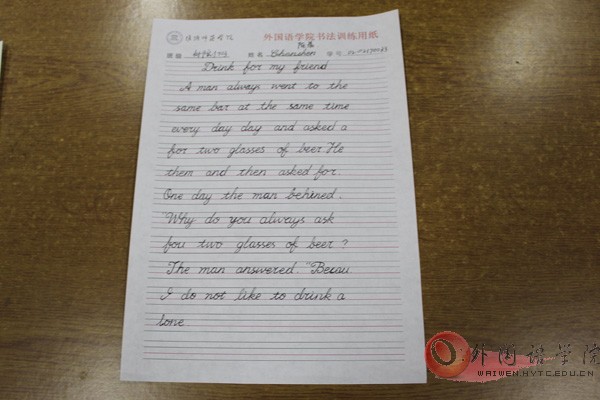 外国语学院书法训练用纸
班级 姓名 Chanshen 学号
Drink for my friend
A man always went to the
same bar at the same time
every day day and asked a
for two glasses of beer He
them and then asked for.
One day the man behined.
"Why do you always ask
fou two glasses of beer ?
The man answered. "Becau
I do not like to drink a
lone
外国语学院
WAIWEN.HYTC.EDU.CN